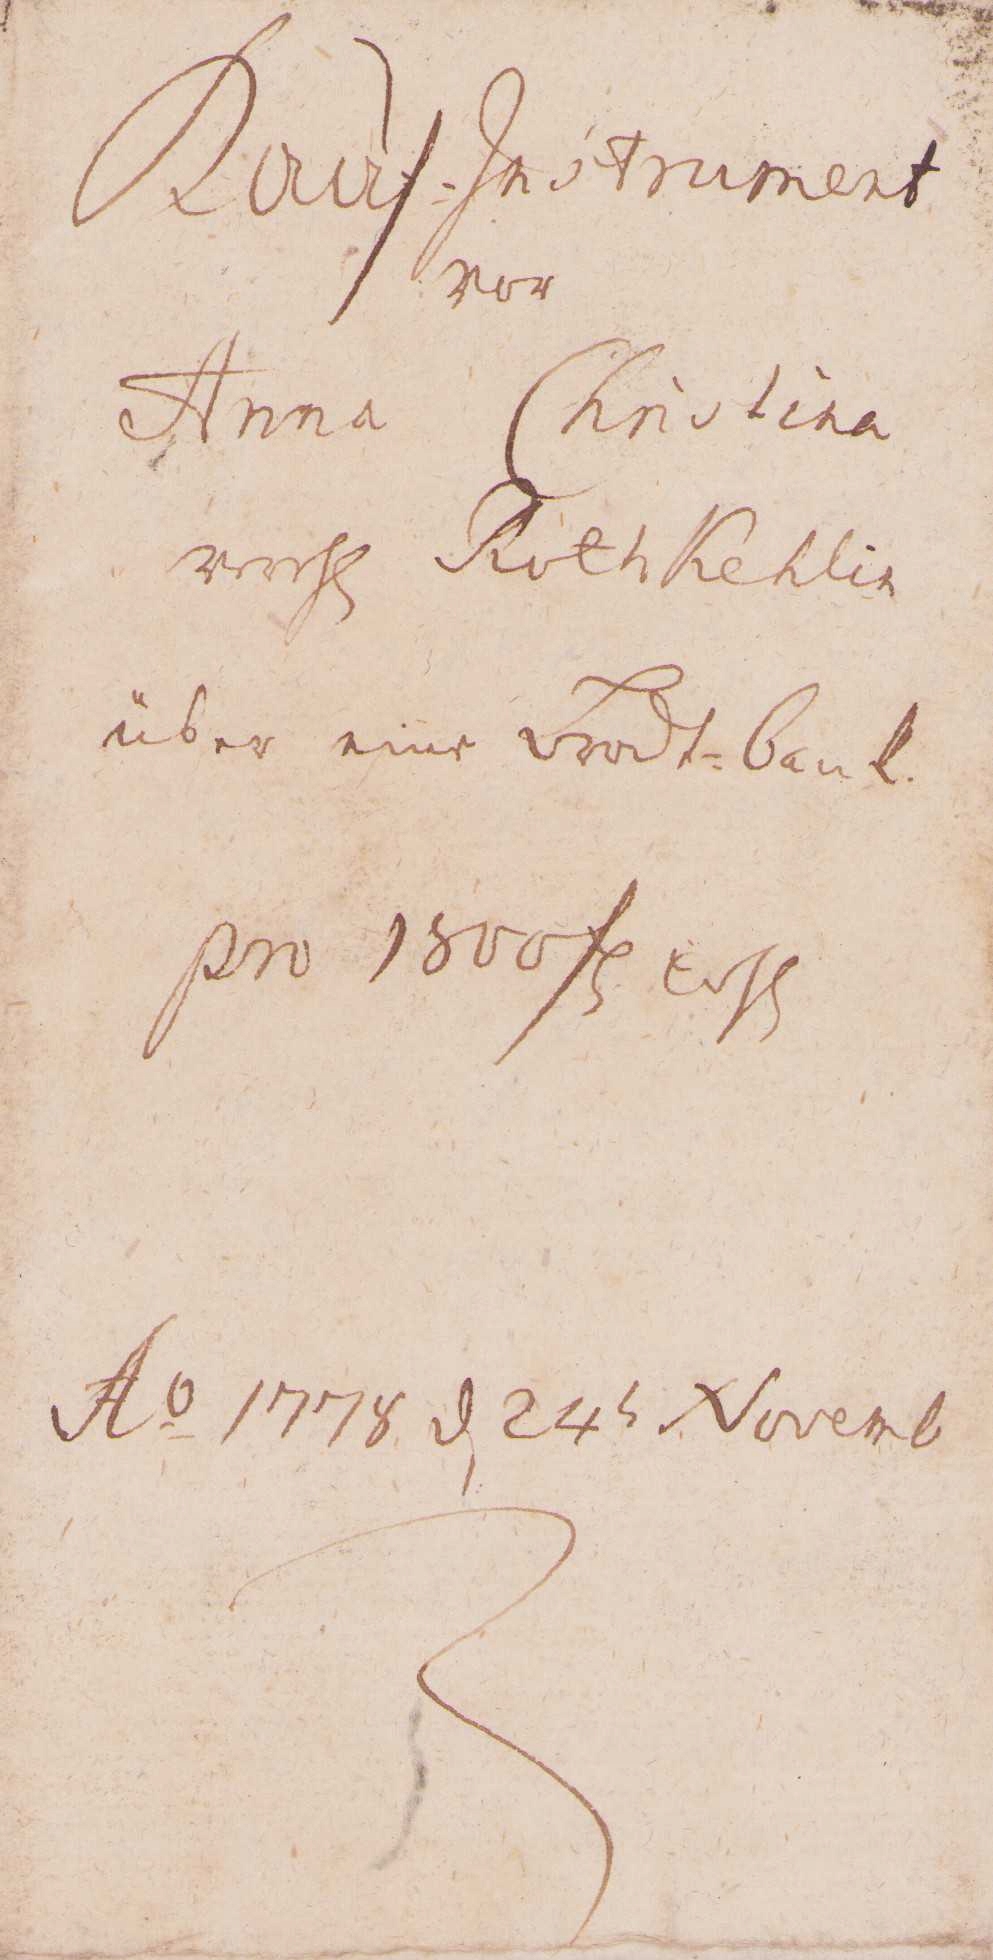 Kauf-Instrument
vor
Anna Christina
verehl RothKehlin
über eine Brodt-Bank.
pro 1800 fl
Ao 1778 d 24t Novemb